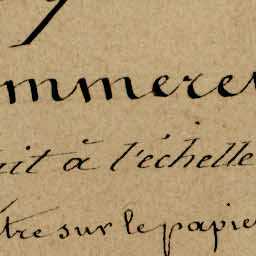 mmere
it à l'échelle
tre sur le papie